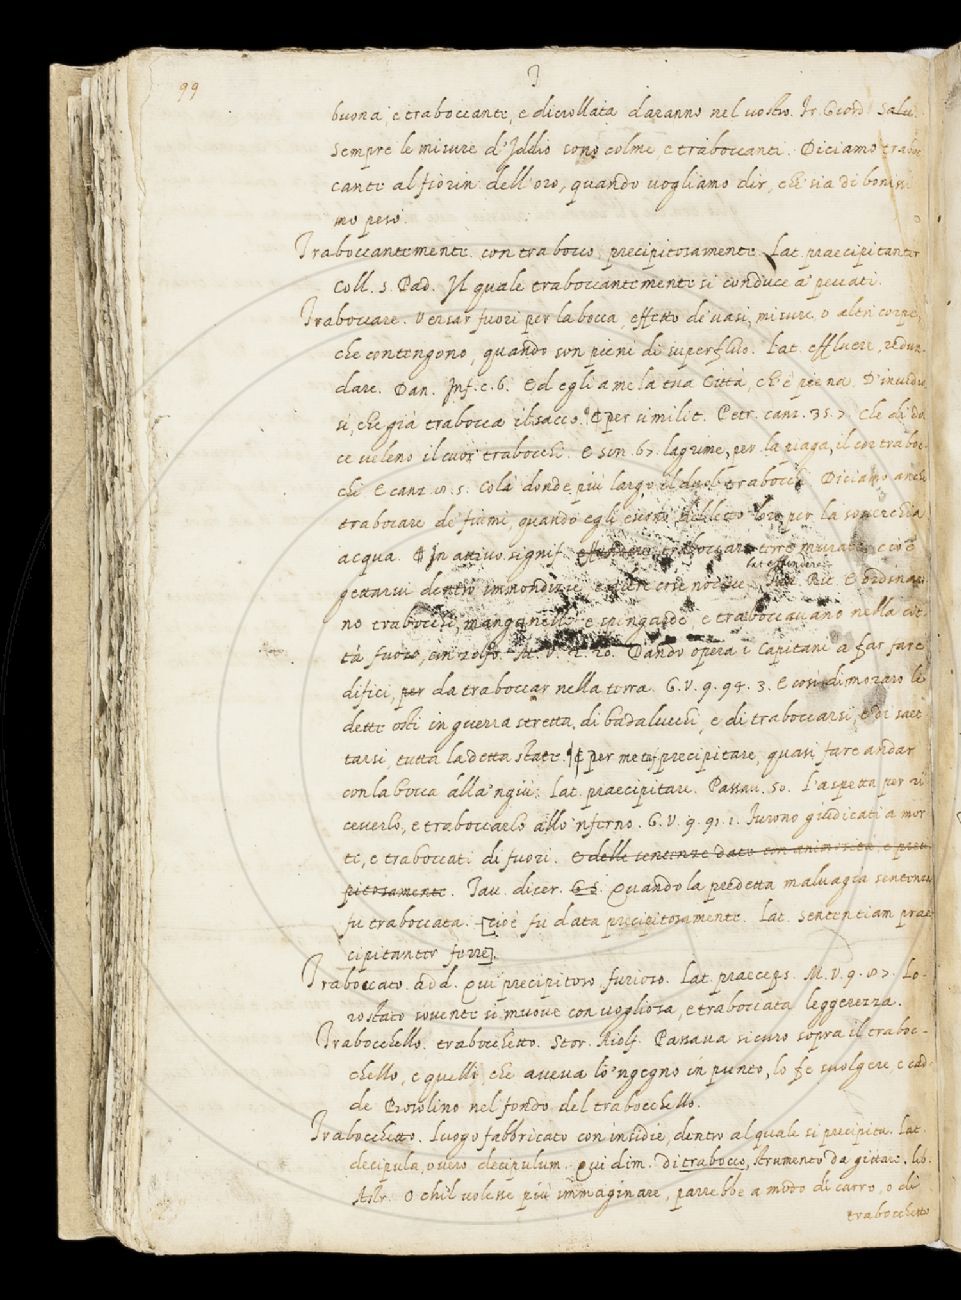 99
T
buona, e traboccante, e dicrollata daranno nel vostro. Fr. Giord. Salu.
Sempre le misure d'Iddio sono colme, e traboccanti. Diciamo traboc
cante al fiorin dell'oro, quando vogliamo dir, che sia di bonissi
mo peso.
Traboccantemente. con trabocco, precipitosamente. Lat. praecipitanter
Coll. S. Pad. Il quale traboccantemente si conduce a' peccati.
Traboccare. Versar fuori per la bocca, effetto de' vasi, misure, o altri corpi,
che contengono, quando son pieni di superfluo. Lat. effluere, redun-
dare. Dan. Inf. c. 6. Ed egli a me la tua Città, ch'è piena D'invidia
sì, che già trabocca il sacco. E per similit. Petr. canz. 35. 7. Che di dol
ce veleno il cuor trabocchi. E son. 67. lagrime, per la piaga, il cor traboc-
chi E canz. 18. 5. Colà donde più largo il duol trabocchi. Diciamo anche
traboccare de' fiumi, quando egli escono del letto loro per la soverchia
acqua. E In attivo signif. traboccare terre murate, cioè
lat. effundere
gettarvi dentro immondizie, e altre cose nocive. Ric. E ordina
no trabocchi, manganelle e spingarde, e traboccavano nella cit
tà fuoco, con zolfo. M. V. 2. 20. Dando opera i Capitani a far fare
difici, per da traboccar nella terra. G. V. 9. 94. 3. E così dimoraro le
dette osti in guerra stretta, di badalucchi, e di traboccarsi, e di saet
tarsi, tutta la detta state. E per metaf. precipitare, quasi fare andar
con la bocca alla 'ngiù. Lat. praecipitare. Passav. 50. L'aspetta per ri
ceverlo, e traboccarlo allo 'nferno. G. V. 9. 91. 1. Furono giudicati a mor
te, e traboccati di fuori. E delle sentenze date con animosità, e preci
pitosamente. Tav. dicer. Quando la predetta malvagia sentenza
fu traboccata. [cioè fu data precipitosamente. Lat. sententiam prae
cipitanter ferre].
Traboccato. add. Qui precipitoso, furioso. Lat. praeceps. M. V. 9. 87. Lo-
ro stato sovente si muove con vogliosa, e traboccata leggerezza.
Trabocchello. trabocchetto. Stor. Aiolf. Passava sicuro sopra il traboc-
chello, e quelli, che aveva lo 'ngegno in punto, lo fe svolgere, e cad-
de nel fondo del trabocchello.
Trabocchetto. Luogo fabbricato con insidie, dentro al quale si precipita. Lat.
decipula, overo decipulum. Qui dim. di trabocco, strumento da gittare. lib.
Astr. O chil volesse più immaginare, parrebbe a modo di carro, o di
trabocchetto